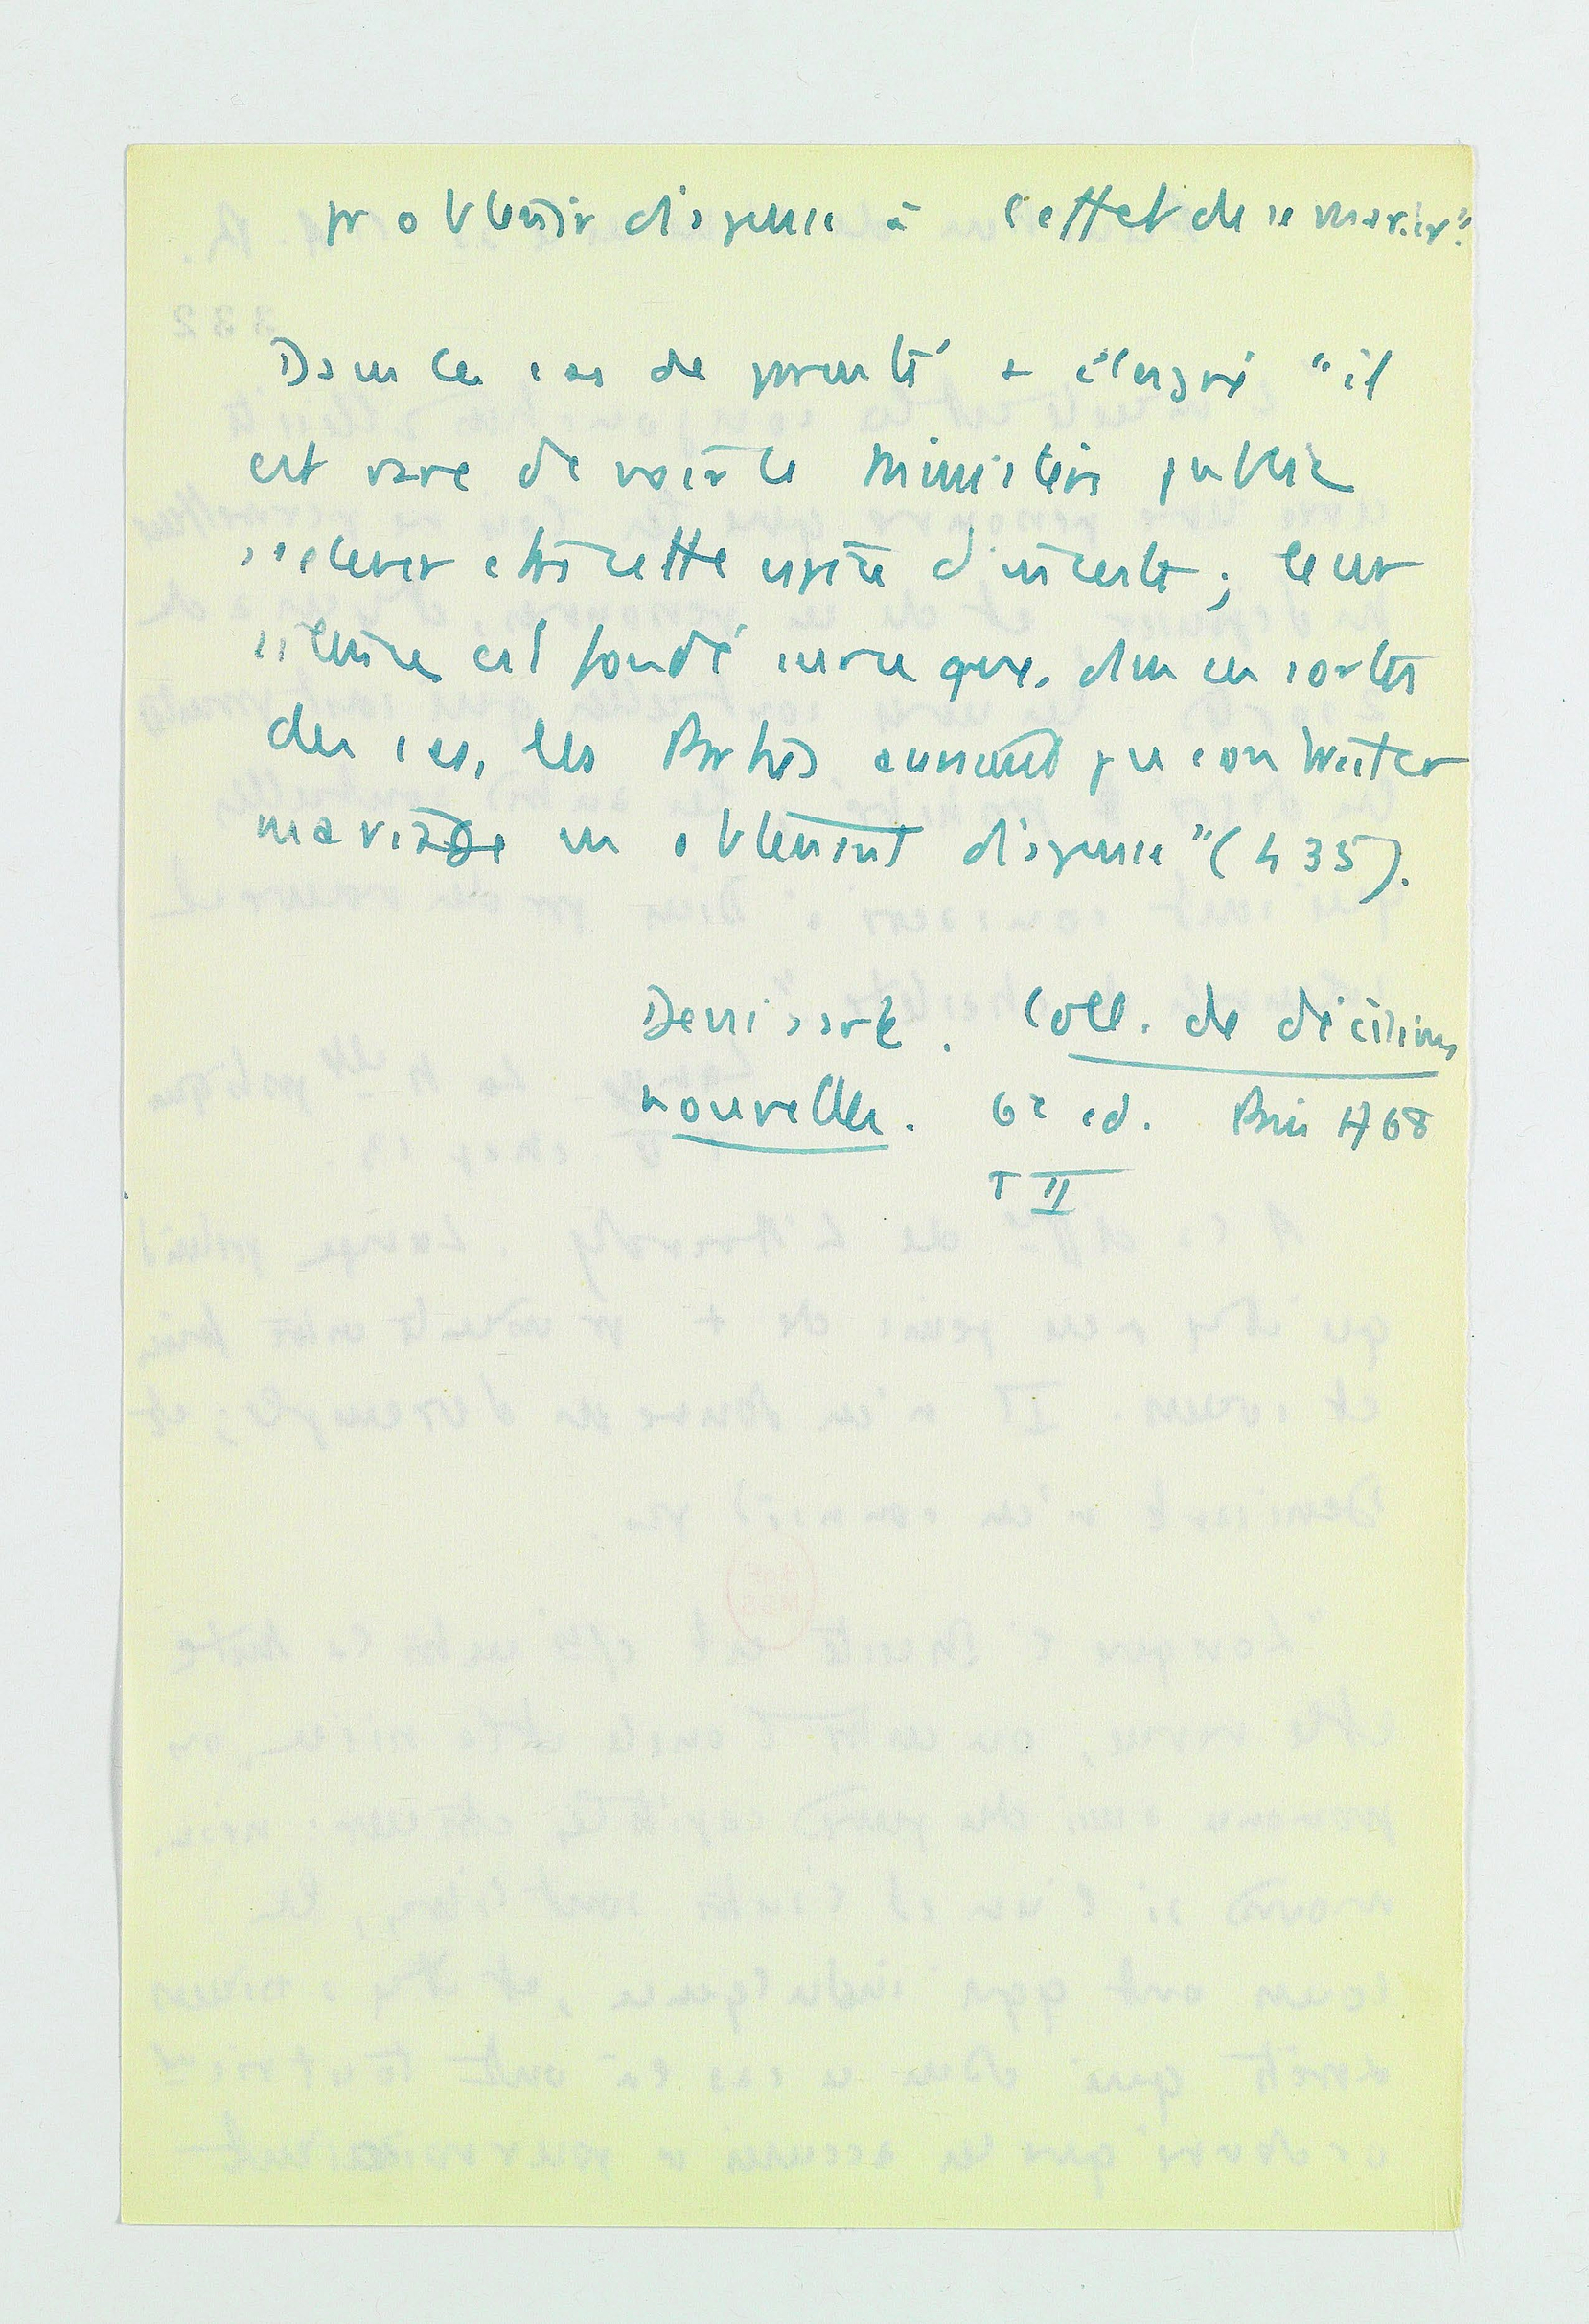 pr obtenir dispense à l'effet de se marier".
Dans les cas de parenté + éloigné "il
est rare de voir le ministère public
s'élever contre cette espèce d'inceste ; leur
silence est fondé sur ce que, dans ces sortes
de cas, les Parties auraient pu contracter
mariage en obtenant dispense" (435).
Denisart. Coll. de décisions
nouvelles. 6e ed. Paris 1768
T II